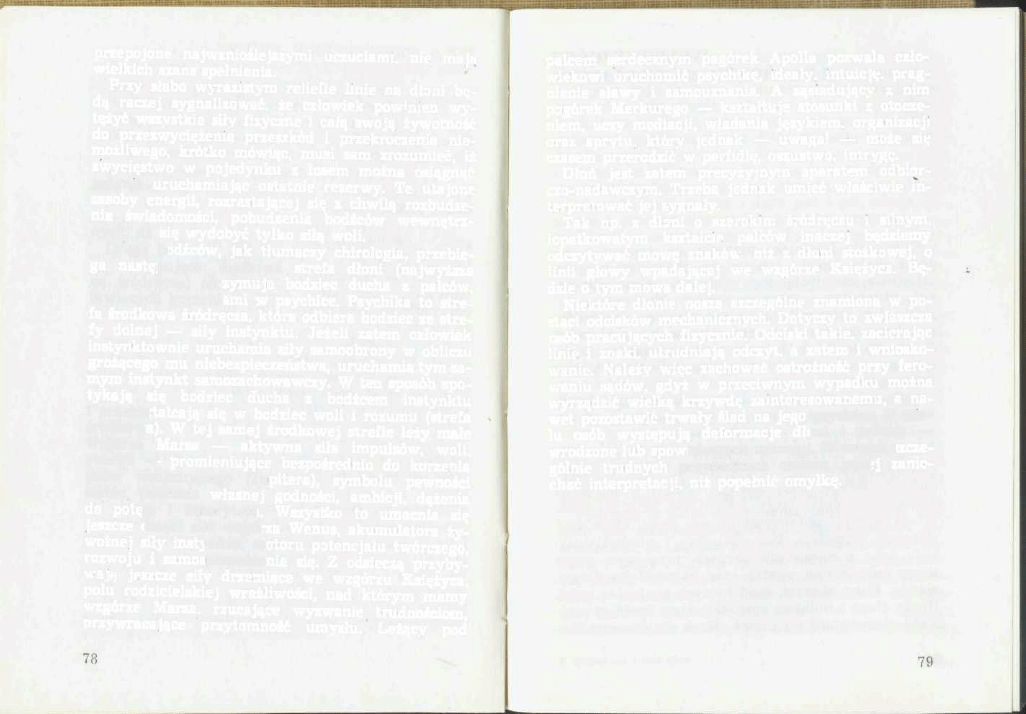 przepojone najwznioślejszymi uczuciami, nie mają
wielkich szans spełnienia.
Przy słabo wyrazistym reliefie linie na dłoni bę-
dą raczej sygnalizować, że człowiek powinien wy-
tężyć wszystkie siły fizyczne i całą swoją żywotność
do przezwyciężenia przeszkód i przekroczenia nie-
możliwego, krótko mówiąc, musi sam zrozumieć, iż
zwycięstwo w pojedynku z losem można osiągnąć
uruchamiając ostatnie rezerwy. Te utajone
zasoby energii, rozrastającej się z chwilą rozbudze-
nia świadomości, pobudzenia bodźców wewnętrz-
się wydobyć tylko siłą woli.
odźców, jak tłumaczy chirologia, przebie-
ga nastę strefa dłoni (najwyższa
zymuje bodziec ducha z palców.
ami w psychice. Psychika to stre-
fa środkowa śródręcza, która odbiera bodziec ze stre-
fy dolnej — siły instynktu. Jeżeli zatem człowiek
instynktownie uruchamia siły samoobrony w obliczu
grożącego mu niebezpieczeństwa, uruchamia tym sa-
mym instynkt samozachowawczy. W ten sposób spo-
tykają się bodziec ducha z bodźcem instynktu
tałcają się w bodziec woli i rozumu (strefa
a). W tej samej środkowej strefie leży małe
Marsa — aktywna siła impulsów, woli,
- promieniujące bezpośrednio do korzenia
pitera), symbolu pewności
własnej godności, ambicji, dążenia
do potę i. Wszystko to umacnia się
jeszcze rza Wenus, akumulatora ży-
wotnej siły inst otoru potencjału twórczego,
rozwoju i samo nia się. Z odsieczą przyby-
wają jeszcze siły drzemiące we wzgórzu Księżyca,
polu rodzicielskiej wrażliwości, nad którym mamy
wzgórze Marsa, rzucające wyzwanie trudnościom,
przywracające przytomność umysłu. Leżący pod
78
palcem serdecznym pagórek Apolla pozwala czło-
wiekowi uruchomić psychikę, ideały, intuicję, prag-
nienie sławy i samouznania. A sąsiadujący z nim
pagórek Merkurego — kształtuje stosunki z otocze-
niem, uczy mediacji, władania językiem, organizacji
oraz sprytu, który jednak — uwaga! — może się
czasem przerodzić w perfidię, oszustwo, intrygę.
Dłoń jest zatem precyzyjnym aparatem odbior-
czo-nadawczym. Trzeba jednak umieć właściwie in-
terpretować jej sygnały.
Tak np. z dłoni o szerokim śródręczu i silnym,
łopatkowatym kształcie palców inaczej będziemy
odczytywać mowę znaków niż z dłoni stożkowej, o
linii głowy wpadającej we wzgórze Księżyca. Bę-
dzie o tym mowa dalej.
Niektóre dłonie noszą szczególne znamiona w po-
staci odcisków mechanicznych. Dotyczy to zwłaszcza
osób pracujących fizycznie. Odciski takie, zacierając
linie i znaki, utrudniają odczyt, a zatem i wniosko-
wanie. Należy więc zachować ostrożność przy fero-
waniu sądów, gdyż w przeciwnym wypadku można
wyrządzić wielką krzywdę zainteresowanemu, a na-
wet pozostawić trwały ślad na jego
lu osób występują deformacje dł
wrodzone lub spow szcze-
gólnie trudnych ej zanie-
chać interpretacji, niż popełnić omyłkę.
79